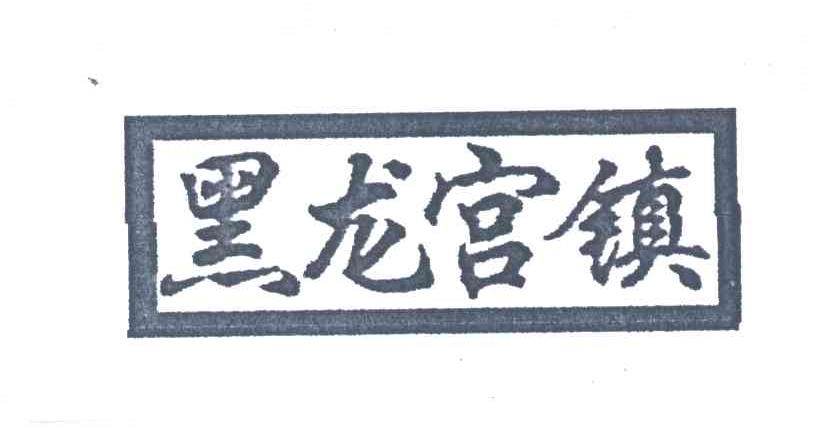 黑龙宫镇